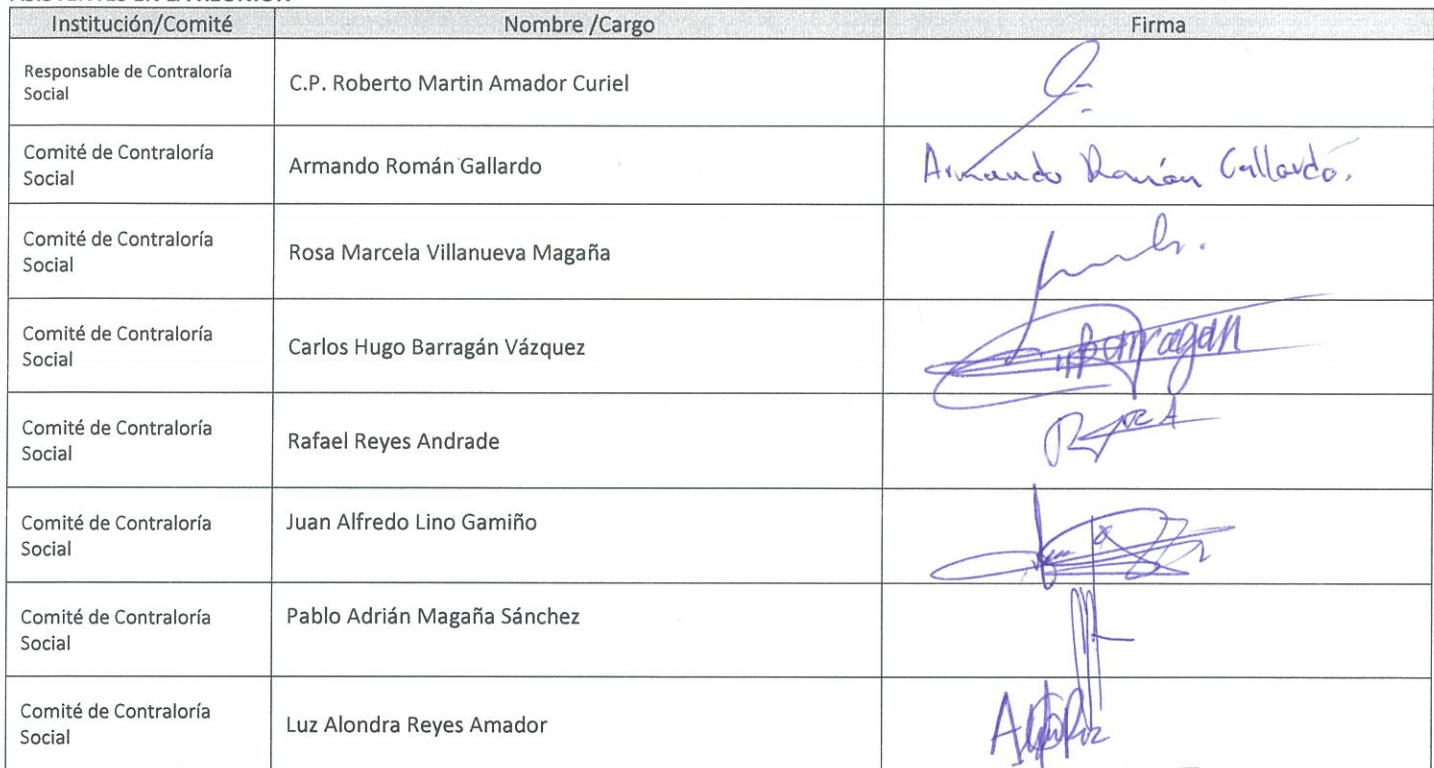 ASISTENTES EN LA REUNIÓN
Institución/Comité Nombre /Cargo Firma
Responsable de Contraloría
Social
C.P. Roberto Martin Amador Curiel
Comité de Contraloría
Social
Armando Román Gallardo
Armando Román Gallardo.
Comité de Contraloría
Social
Rosa Marcela Villanueva Magaña
Comité de Contraloría
Social
Carlos Hugo Barragán Vázquez
Barragan
Comité de Contraloría
Social
Rafael Reyes Andrade
Comité de Contraloría
Social
Juan Alfredo Lino Gamiño
Comité de Contraloría
Social
Pablo Adrián Magaña Sánchez
Comité de Contraloría
Social
Luz Alondra Reyes Amador